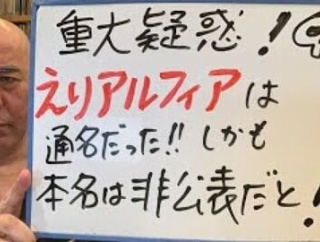 重大疑惑!
えりアルフィアは
通名だった!! しかも
本名は非公表だと!